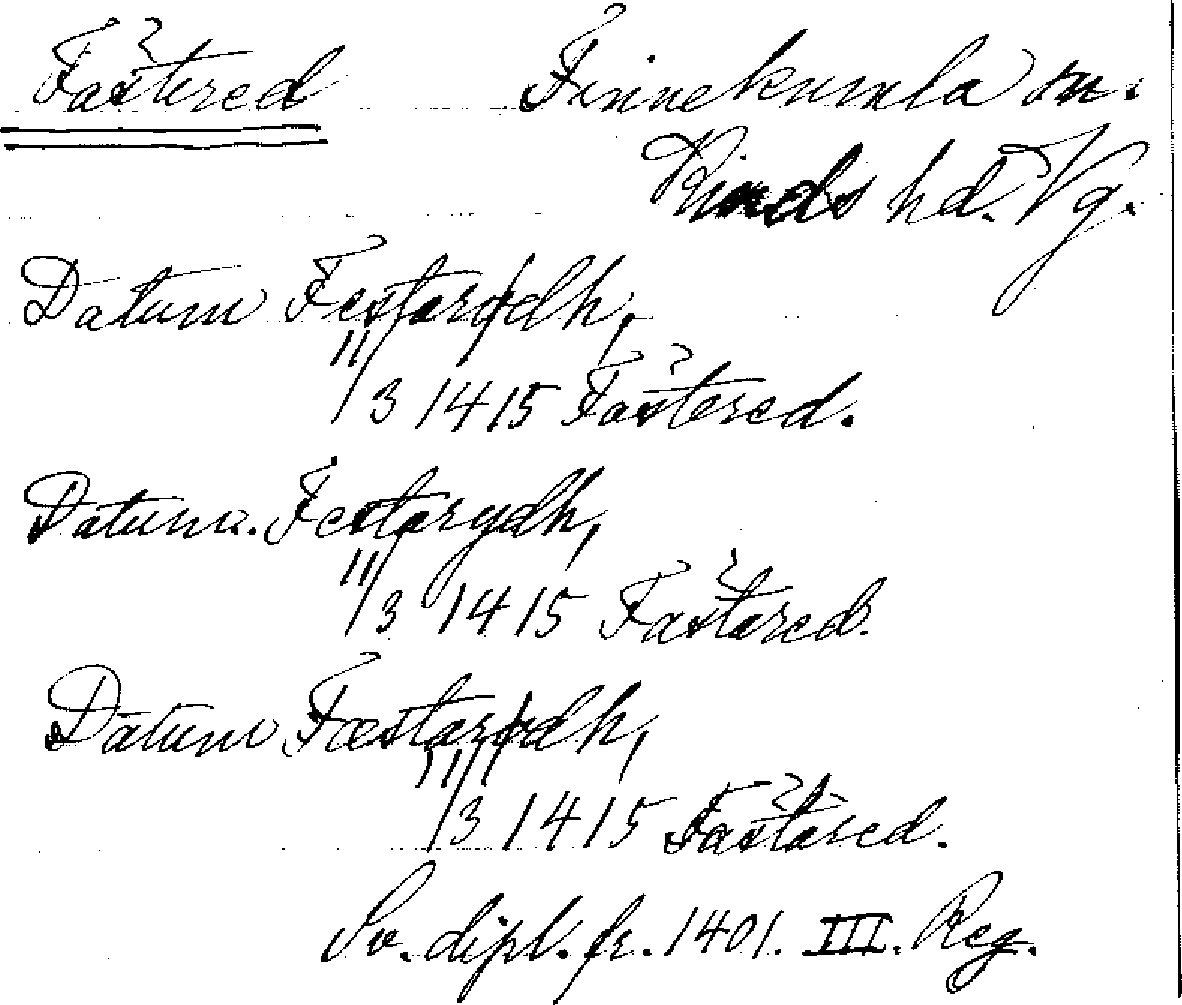 Fåstered Finnekumla sn.
Kinds hd. Vg.
Datum Festarødh,
11/3 1415 Fåstered.
Datum. Festarydh,
11/3 1415 Fåstared.
Datum Fæstarødh,
11/3 1415 Fåstared.
Sv. dipl. fr. 1401. III. Reg.